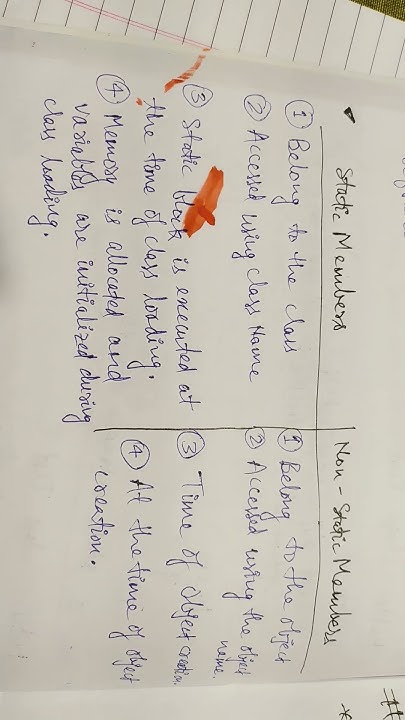 Static Members
① Belong to the class
② Accessed using class Name
③ Static block is executed at
the time of class loading.
④ Memory is allocated and
variables are initialized during
class loading.
Non-Static Members
① Belong to the object
② Accessed using the object
name.
③ Time of object creation.
④ At the time of object
creation.